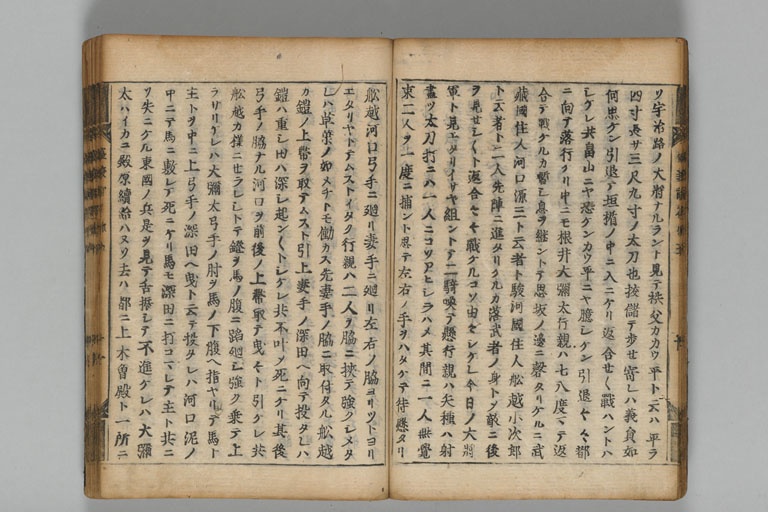 リ宇治路ノ大将ナルラント見テ秩父カカウ平ト云ハ平ラ
四寸長サ三尺九寸ノ太刀也按儲テ歩セ寄レハ義負如
何思ケン引退テ垣楯ノ中ニ入ニケリ返合せく戰ハントハ
シケレ共畠山ニヤ恐ケンカウ平ニヤ臆レケン引退々々都
ニ向テ落行クリ中ニモ根井大彌太行親ハ七八度マテ返
合テ戰ケルカ暫シ息ヲ継ントテ思坂ノ邊ニ磬タリケルニ武
藏國住人河口源三ト云者ト駿河國住人舩越小次郎
ト云者ト二人先陣ニ進タリケルカ落武者ノ身トヅ敵ニ後
ヲ見せシくト返合セ々戰ケルコソ由せシケレ今日ノ大將
軍ト見エタリイサヤ組ントテ二騎喚テ懸行親ハ矢種ハ射
盡ツ太刀打ニハ一人ニコリアヒシラハメ其間ニ一人無覺
束二人ヲ一度ニ捕ント思テ左右ノ手ヲハタケテ待懸タリ
舩越河口弓手ニ廻リ妻手ニ廻リ左右ノ脇ヨリツトヨリ
エタリヤトテムストイタク行親ハ二人ヲ脇ニ挾テ強クシメタ
レハ草菜ノ如メチトモ働カス先妻手ノ脇ニ取付タル舩越
カ鎧ノ上帶ヲ取テムスト引上妻手ノ深田ヘ向テ投タレハ
鎧ハ重シ田ハ深シ起ンくトシケレ共不叶メ死ニケリ其後
弓手ノ脇ナル河口ヲ前後ノ上帶取テ曳々ト引ケレ共
舩越カ様ニせラレシトテ鐙ヲ馬ノ腹ニ踏廻シ強ク乗テ上
ラサリケレハ大彌太弓手ノ肘ヲ馬ノ下腹ヘ指ヤリテ馬ト
主トヲ中ニ上弓手ノ深田ヘ曳ト云テ投タレハ河口泥ノ
中ニテ馬ニ敷レテ死ニケリ馬モ深田ニ打コマレテ主ト共ニ
リ失ニケル東國ノ兵是ヲ見テ舌振シテ不進ケレハ大彌
太ハイカニ殿原續給ハヌリ去ハ都ニ上木曽殿ト一所ニ